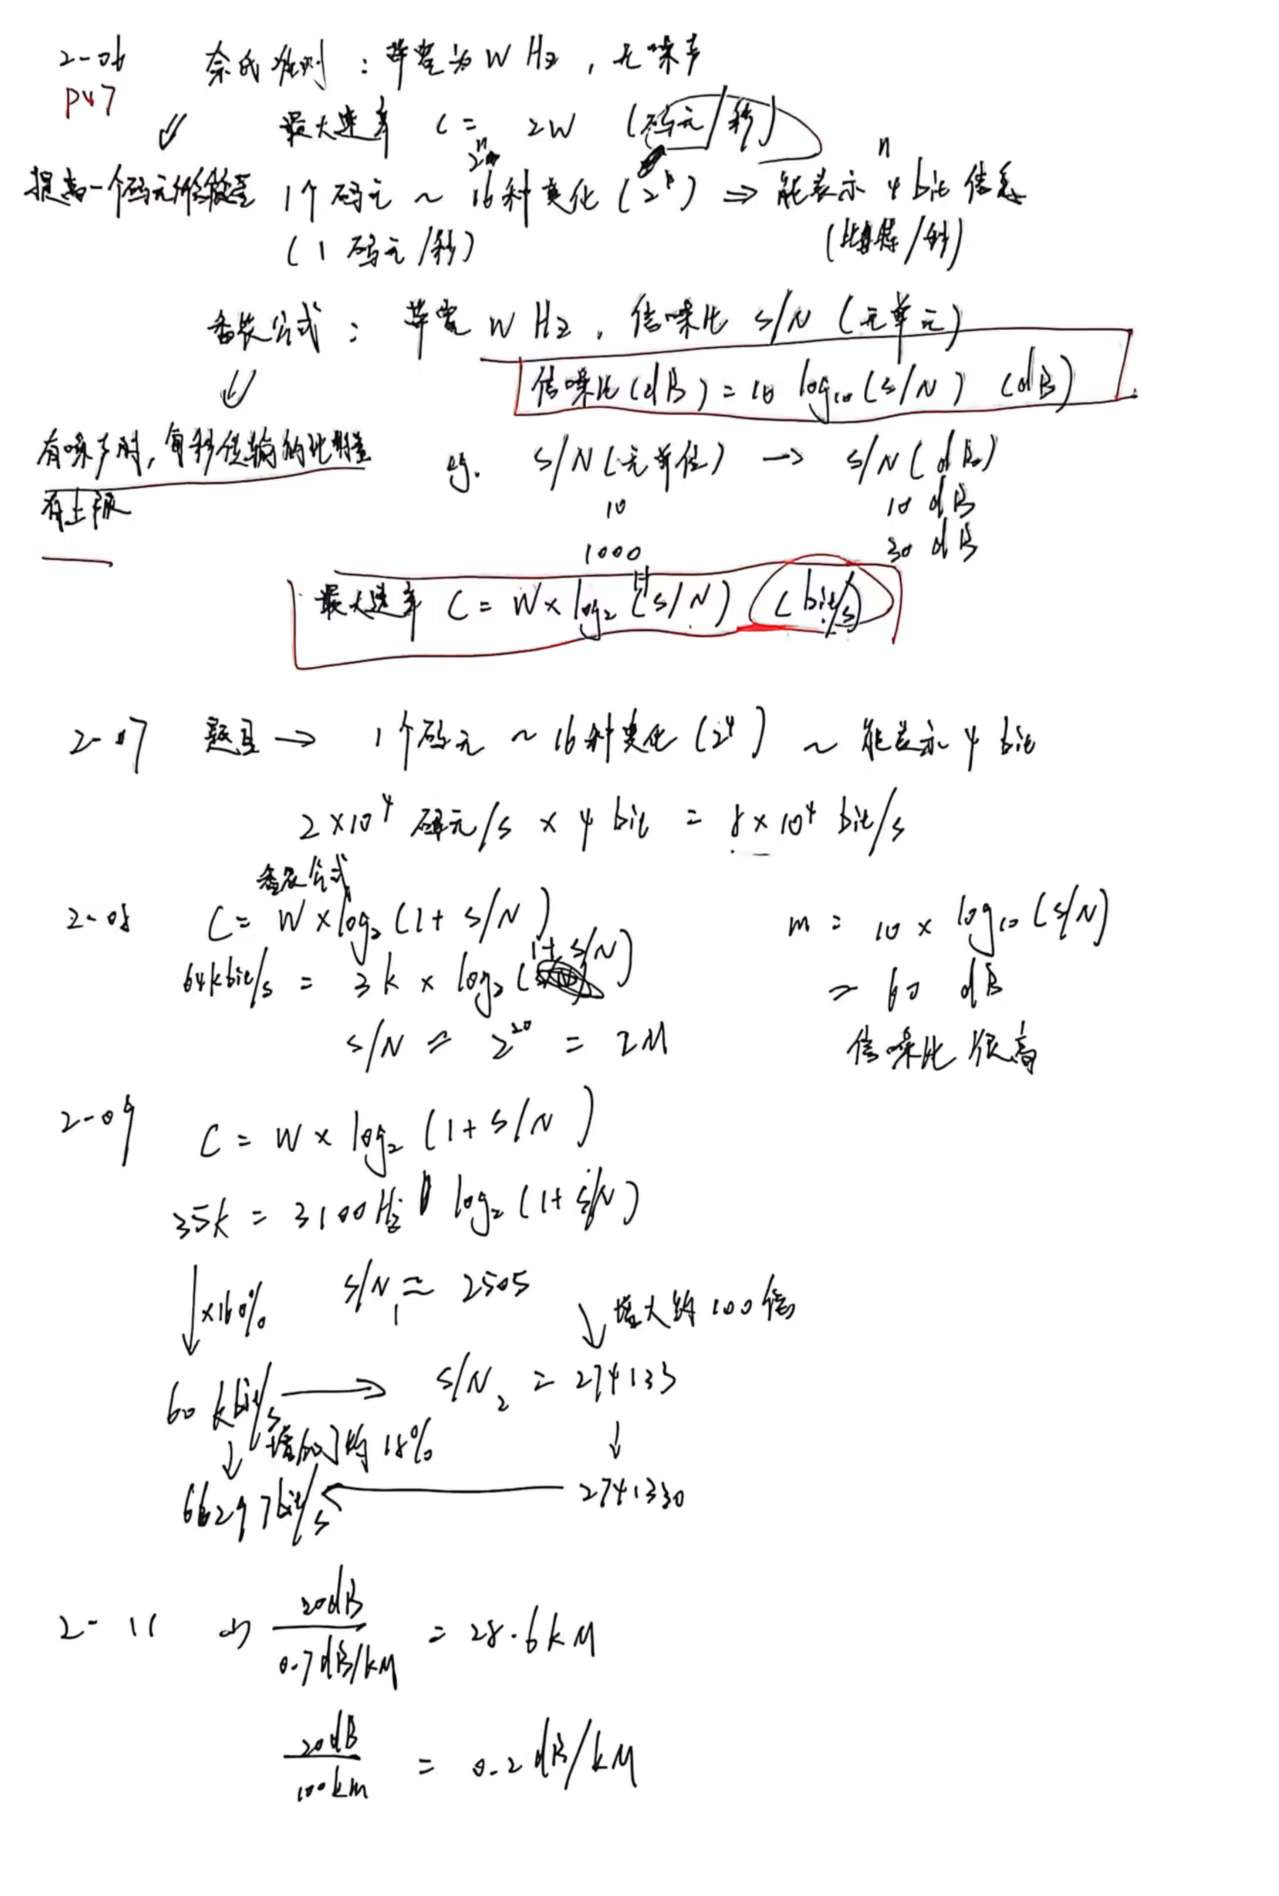 2-06 奈氏准则：带宽为W Hz，无噪声
P47
最大速率 C = 2W （码元/秒）
2ⁿ n
提高一个码元所能携 1个码元 ~ 16种变化（2⁴）⇒ 能表示 4 bit 信息
（1码元/秒） （比特/秒）
香农公式：带宽 W Hz，信噪比 S/N（无单元）
信噪比(dB) = 10 log₁₀(S/N) (dB)
有噪声时，每秒传输的比特量
有上限
eg. S/N(无单位) → S/N(dB)
10 10 dB
1000 30 dB
最大速率 C = W × log₂(1+S/N) (bit/s)
2-07 题目 → 1个码元 ~ 16种变化（2⁴）~ 能表示 4 bit
2×10⁴ 码元/s × 4 bit = 8×10⁴ bit/s
香农公式
2-08 C = W × log₂(1+S/N)
64kbit/s = 3k × log₂(1+S/N)
S/N = 2²⁰ = 2M
m = 10 × log₁₀(S/N)
= 60 dB
信噪比很高
2-09 C = W × log₂(1+S/N)
35k = 3100Hz log₂(1+S/N)
S/N₁ ≈ 2505
↓×160% ↓增大约100倍
60 kbit/s → S/N₂ = 274133
↓增加了约18% ↓
66297bit/s ← 2741330
2-11 20dB / 0.7dB/kM = 28.6kM
20dB / 100km = 0.2dB/kM